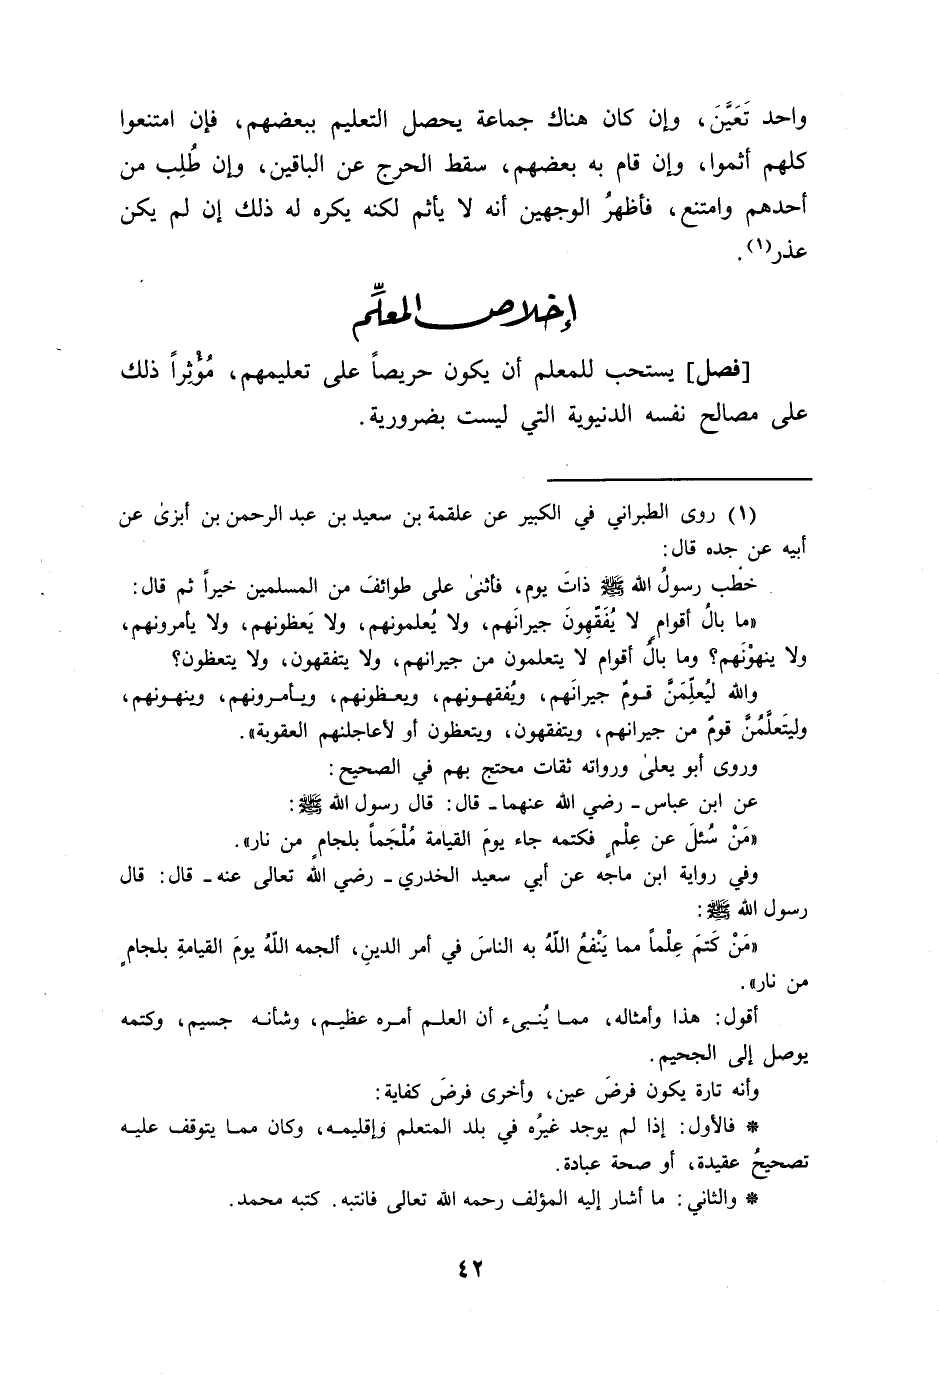 واحد تَعَيَّنَ، وإن كان هناك جماعة يحصل التعليم ببعضهم، فإن امتنعوا
كلهم أثموا، وإن قام به بعضهم، سقط الحرج عن الباقين، وإن طُلِب من
أحدهم وامتنع، فأظهرُ الوجهين أنه لا يأثم لكنه يكره له ذلك إن لم يكن
عذر(١).
إخلاص المعلِّم
[فصل] يستحب للمعلم أن يكون حريصاً على تعليمهم، مُؤْثِراً ذلك
على مصالح نفسه الدنيوية التي ليست بضرورية.
(١) روى الطبراني في الكبير عن علقمة بن سعيد بن عبد الرحمن بن أبزىٰ عن
أبيه عن جده قال:
خطب رسولُ الله ﷺ ذاتَ يوم، فأثنىٰ على طوائفَ من المسلمين خيراً ثم قال:
«ما بالُ أقوامٍ لا يُفَقّهونَ جيرانَهم، ولا يُعلمونهم، ولا يَعظونهم، ولا يأمرونهم،
ولا ينهوْنَهم؟ وما بالُ أقوام لا يتعلمون من جيرانهم، ولا يتفقهون، ولا يتعظون؟
والله ليُعلِّمَنَّ قومٌ جيرانَهم، ويُفقهونهم، ويعظونهم، ويأمرونهم، وينهونهم،
وليتَعلَّمُنَّ قومٌ من جيرانهم، ويتفقهون، ويتعظون أو لأعاجلنهم العقوبة».
وروى أبو يعلىٰ ورواته ثقات محتج بهم في الصحيح:
عن ابن عباس - رضي الله عنهما - قال: قال رسول الله ﷺ:
«مَنْ سُئلَ عن عِلْمٍ فكتمه جاء يومَ القيامة مُلْجَماً بلجامٍ من نار».
وفي رواية ابن ماجه عن أبي سعيد الخدري - رضي الله تعالى عنه - قال: قال
رسول الله ﷺ:
«مَنْ كَتمَ عِلْماً مما يَنْفعُ اللّهُ به الناسَ في أمر الدينِ، ألجمه اللّهُ يومَ القيامةِ بلجامٍ
من نار».
أقول: هذا وأمثاله، مما يُنبىء أن العلم أمره عظيم، وشأنه جسيم، وكتمه
يوصل إلى الجحيم.
وأنه تارة يكون فرضَ عين، وأخرى فرضَ كفاية:
* فالأول: إذا لم يوجد غيرُه في بلد المتعلم وإقليمه، وكان مما يتوقف عليه
تصحيحُ عقيدة، أو صحة عبادة.
* والثاني: ما أشار إليه المؤلف رحمه الله تعالى فانتبه. كتبه محمد.
٤٢